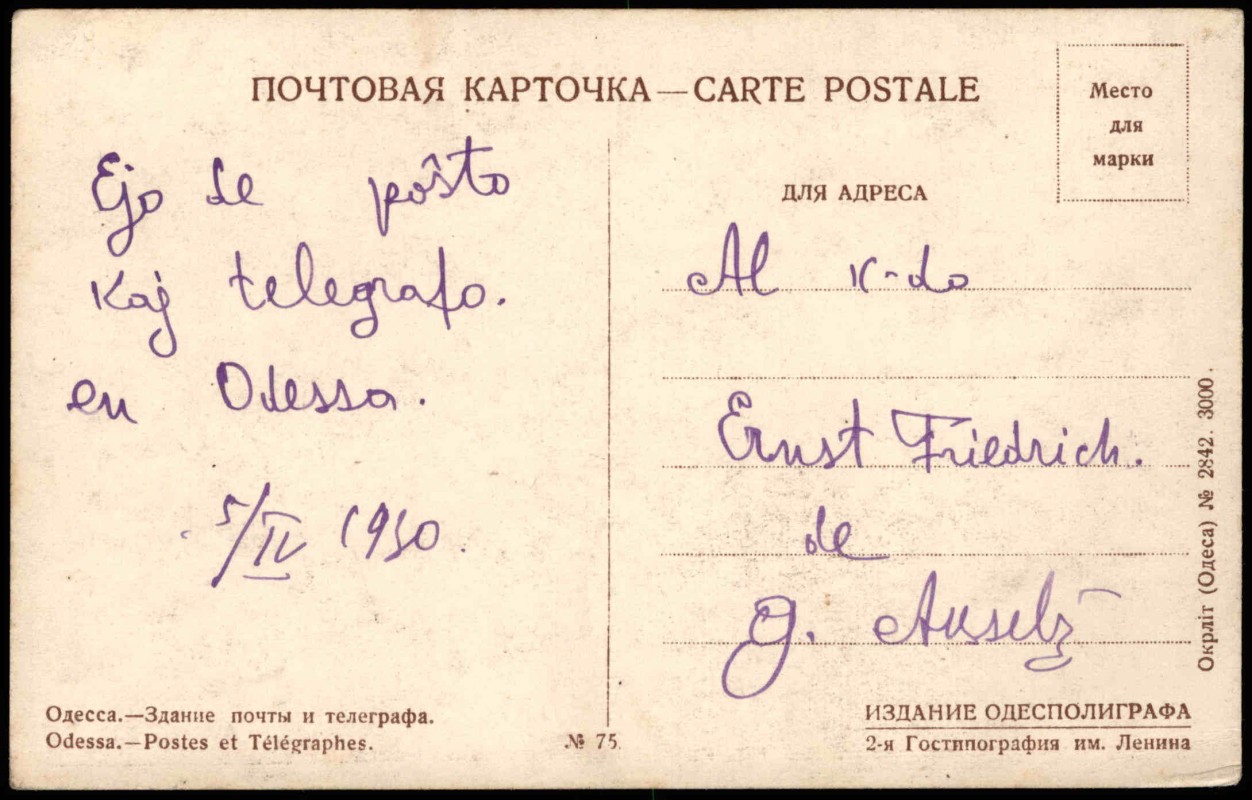 ПОЧТОВАЯ КАРТОЧКА — CARTE POSTALE
Место
для
марки
Ejo de poŝto
kaj telegrafo.
en Odessa.
5/IV 1930.
ДЛЯ АДРЕСА
Al k-do
Ernst Friedrich.
de
Одесса.—Здание почты и телеграфа.
Odessa.—Postes et Télégraphes.
№ 75
ИЗДАНИЕ ОДЕСПОЛИГРАФА
2-я Гостипография им. Ленина
Окрліт (Одеса) № 2842. 3000.